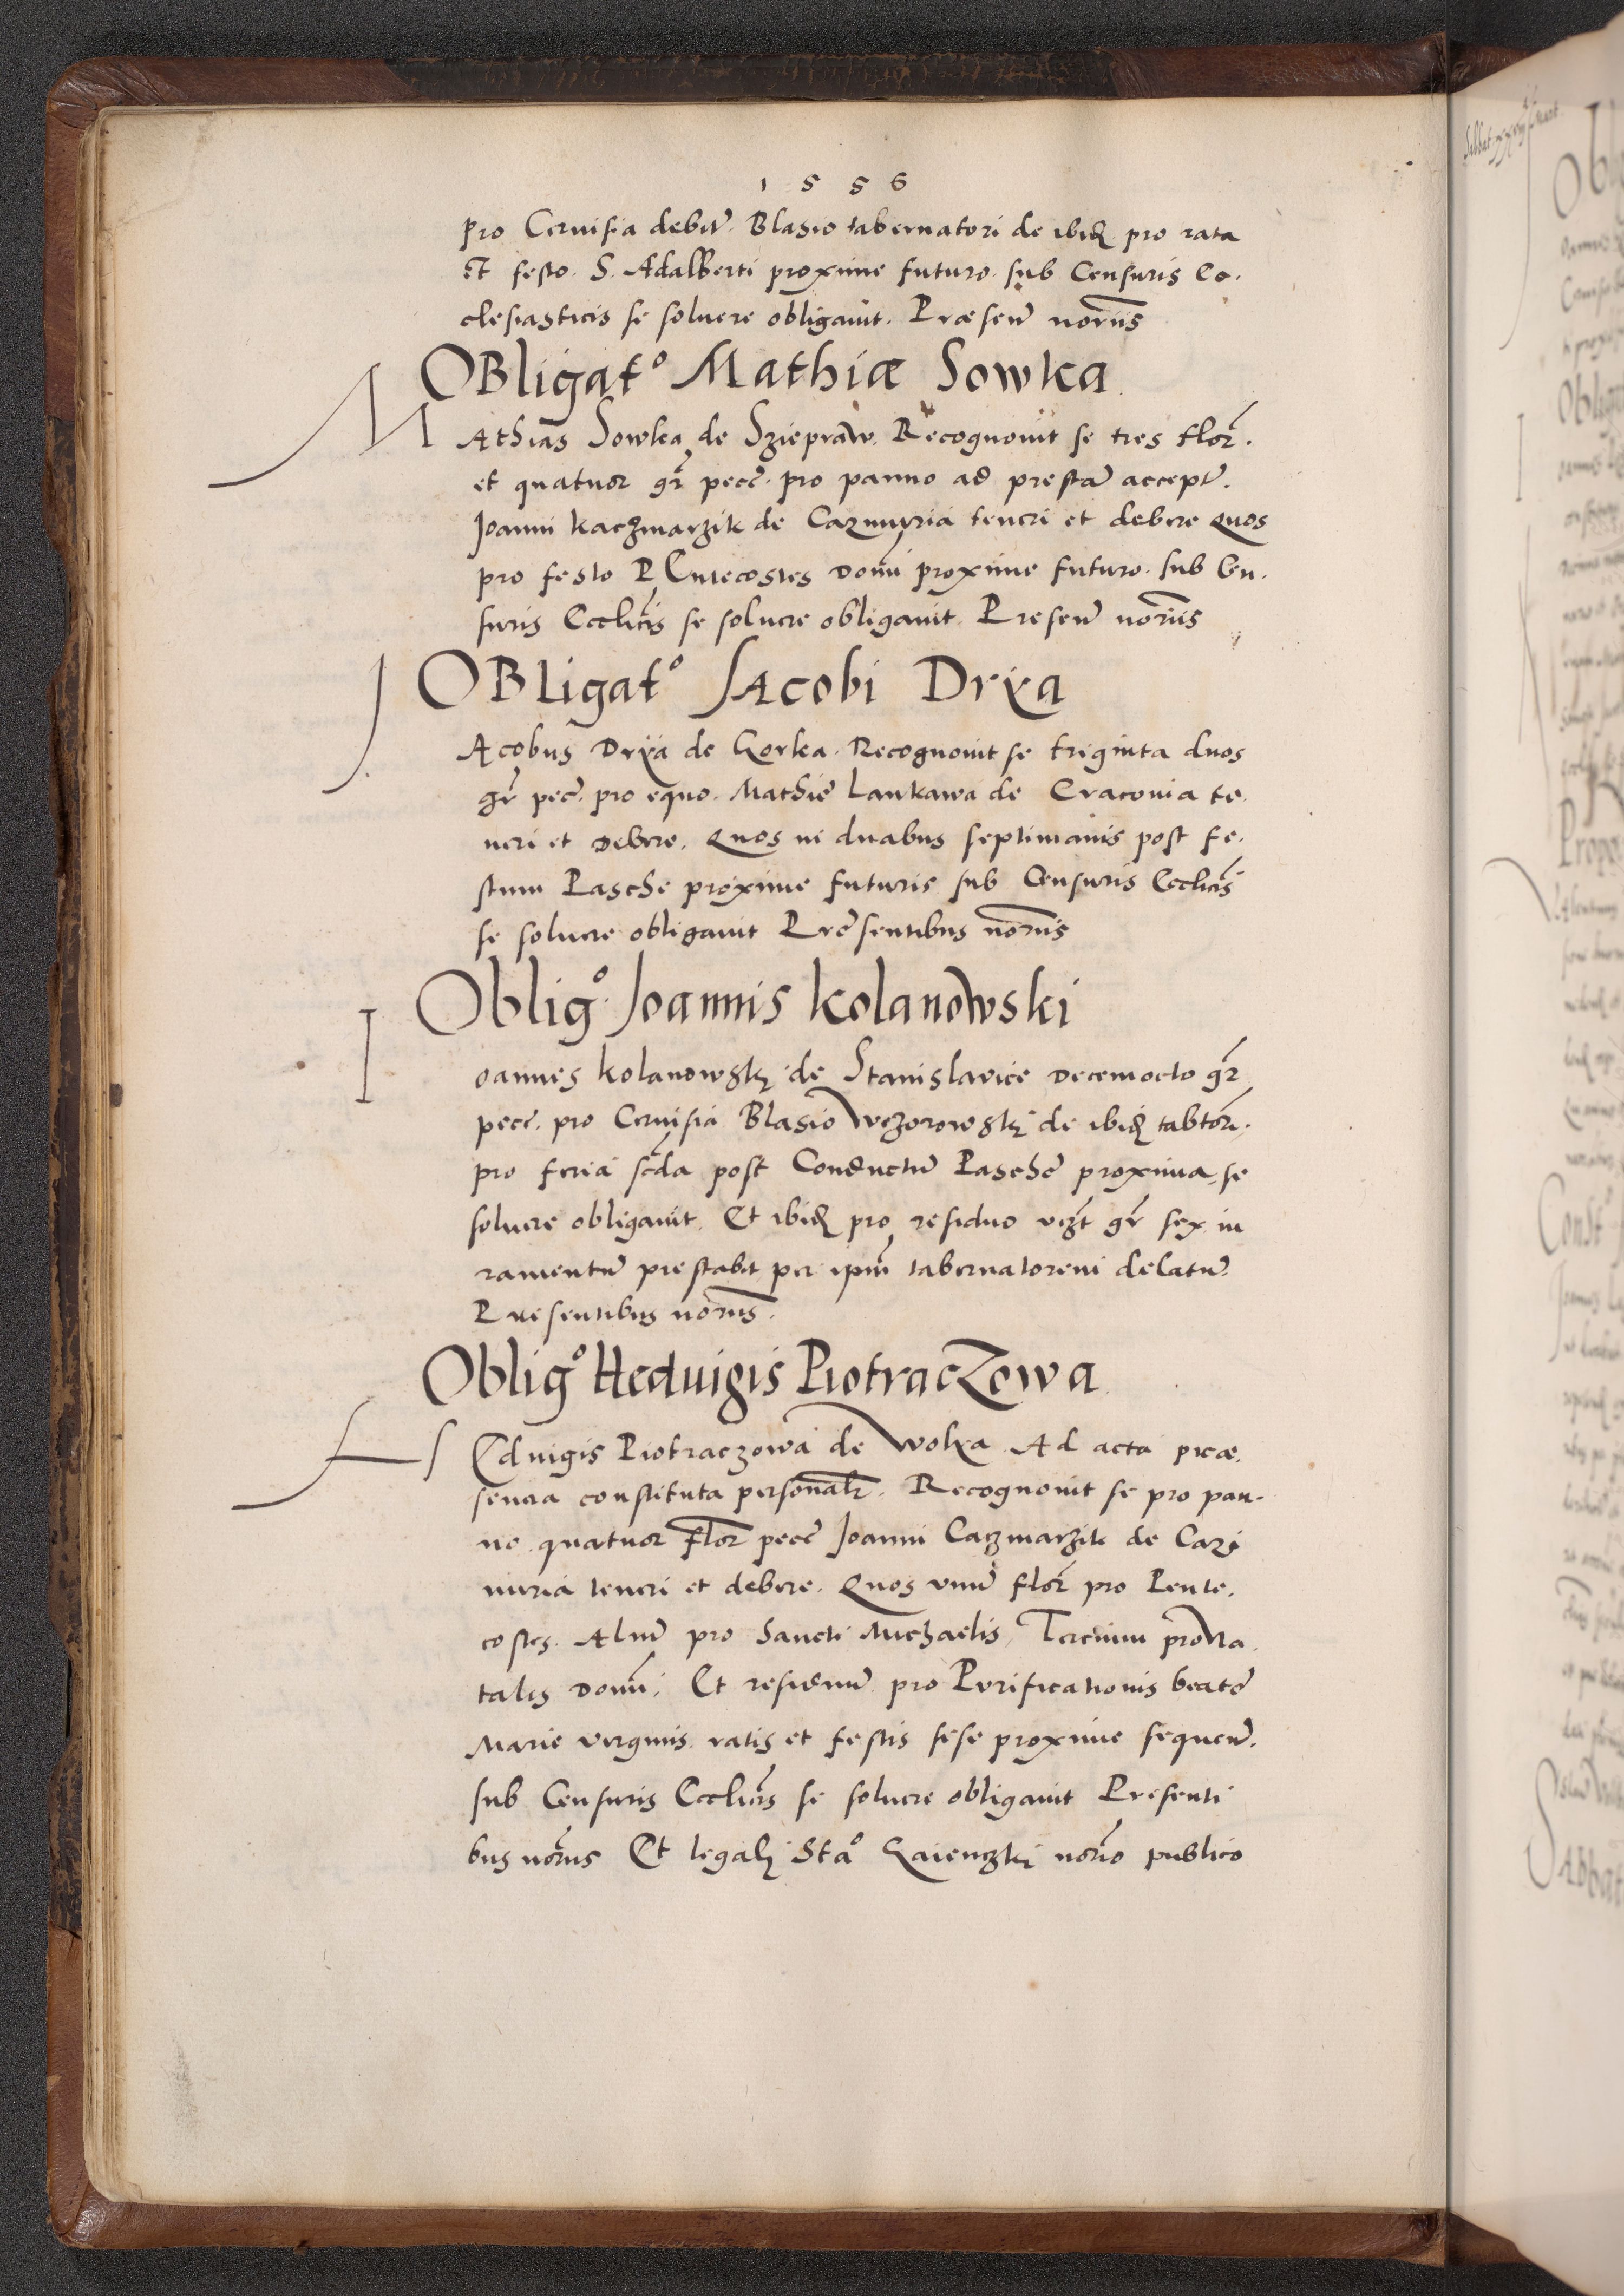 1 5 5 6
pro Ceruisia debit̃. Blasio tabernatori de ibid pro rata
et festo. S. Adalberti proxime futuro. sub Censuris Ec.
clesiasticis se soluere obligauit. Præsen̄ nor̄iis
OBligat° Mathiæ Sowka
M
Athias Sowka de Sziepraw. Recognouit se tres flor̄.
et quatuor gr̄ pecc̄. pro panno ad prestā accept̄.
Joanni kaczmarzik de Cazmiria teneri et debere Quos
pro festo PEntecostes Domī proxime futuro. sub Cen.
suris Ecclic̄is se soluere obligauit. Presen̄ nor̄iis
OBligat° JAcobi Dryа
J
Acobus Drÿa de Gorka. Recognouit se triginta duos
gr̄ pec̄. pro equo. Mathie Lankawa de Cracouia te.
neri et Debere. Quos in duabus septimanis post fe.
stum Pasche proxime futuris sub Censuris Ecclic̄is
se soluere obligauit Presentibus nor̄iis
Oblig° Joannis kolanowski
I
oannes kolanowskj de Stanislavice Decemocto gr̄
pecc̄. pro Ceruisia Blasio Wczorowskj de ibid tabtōri.
pro feria sc̄da post Conductū Pasche proxima se
soluere obligauit. Et ibid pro residuo vizt̄ gr̄ sex iu
ramentū prestabit per ipm̄ tabernatorem delatū.
Presentibus nor̄iis.
Oblig° Heduigis PiotracZowa
H
Eduigis Piotraczowa de Wolya Ad acta præ.
sencia constituta personalr̄. Recognouit se pro pan.
no quatuor flor̄ pecc̄ Joanni Caczmarzik de Cazi
miria teneri et debere. Quos vnū flor̄ pro Pente.
costes. Aliū pro Sancti Michaelis, Tercium pro Na
talis Domī. Et residuū pro Purificationis beate
Marie virginis. ratis et festis sese proxime sequen̄.
sub Censuris Ecclic̄is se soluere obligauit Presenti
bus nor̄iis Et legalj Sta° nor̄io publico